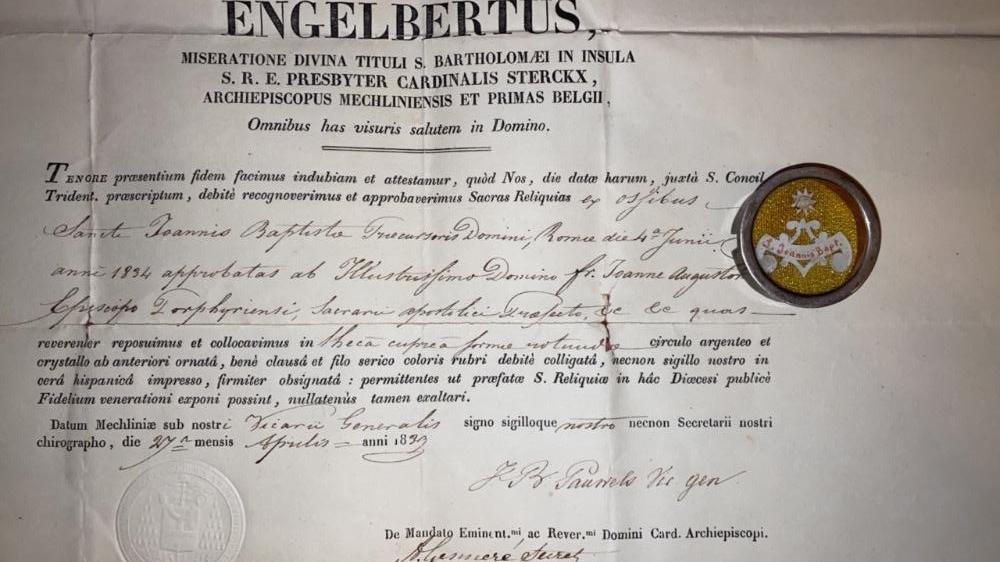 ENGELBERTUS,
MISERATIONE DIVINA TITULI S. BARTHOLOMÆI IN INSULA
S. R. E. PRESBYTER CARDINALIS STERCKX,
ARCHIEPISCOPUS MECHLINIENSIS ET PRIMAS BELGII,
Omnibus has visuris salutem in Domino.
TENORE præsentium fidem facimus indubiam et attestamur, quòd Nos, die datæ harum, juxtà S. Concil.
Trident. præscriptum, debitè recognoverimus et approbaverimus Sacras Reliquias ex ossibus
Sancti Joannis Baptistæ Præcursoris Domini, Romæ die 4ª Junii
anni 1834 approbatas ab Illustrissimo Domino fr. Joanne Augustino
Episcopo Porphyriensi, Sacrarii apostolici Præfecto, &c &c quas
reverenter reposuimus et collocavimus in theca cuprea formæ rotundæ circulo argenteo et
crystallo ab anteriori ornatâ, benè clausâ et filo serico coloris rubri debitè colligatâ, necnon sigillo nostro in
cerâ hispanicâ impresso, firmiter obsignatâ : permittentes ut præfatæ S. Reliquiæ in hâc Diœcesi publicè
Fidelium venerationi exponi possint, nullatenùs tamen exaltari.
Datum Mechliniæ sub nostri Vicarii Generalis signo sigilloque nostro necnon Secretarii nostri
chirographo, die 27ª mensis Aprilis anni 1839
J B Pauwels Vic gen
De Mandato Eminent.mi ac Rever.mi Domini Card. Archiepiscopi.
S. Joannis Bapt.